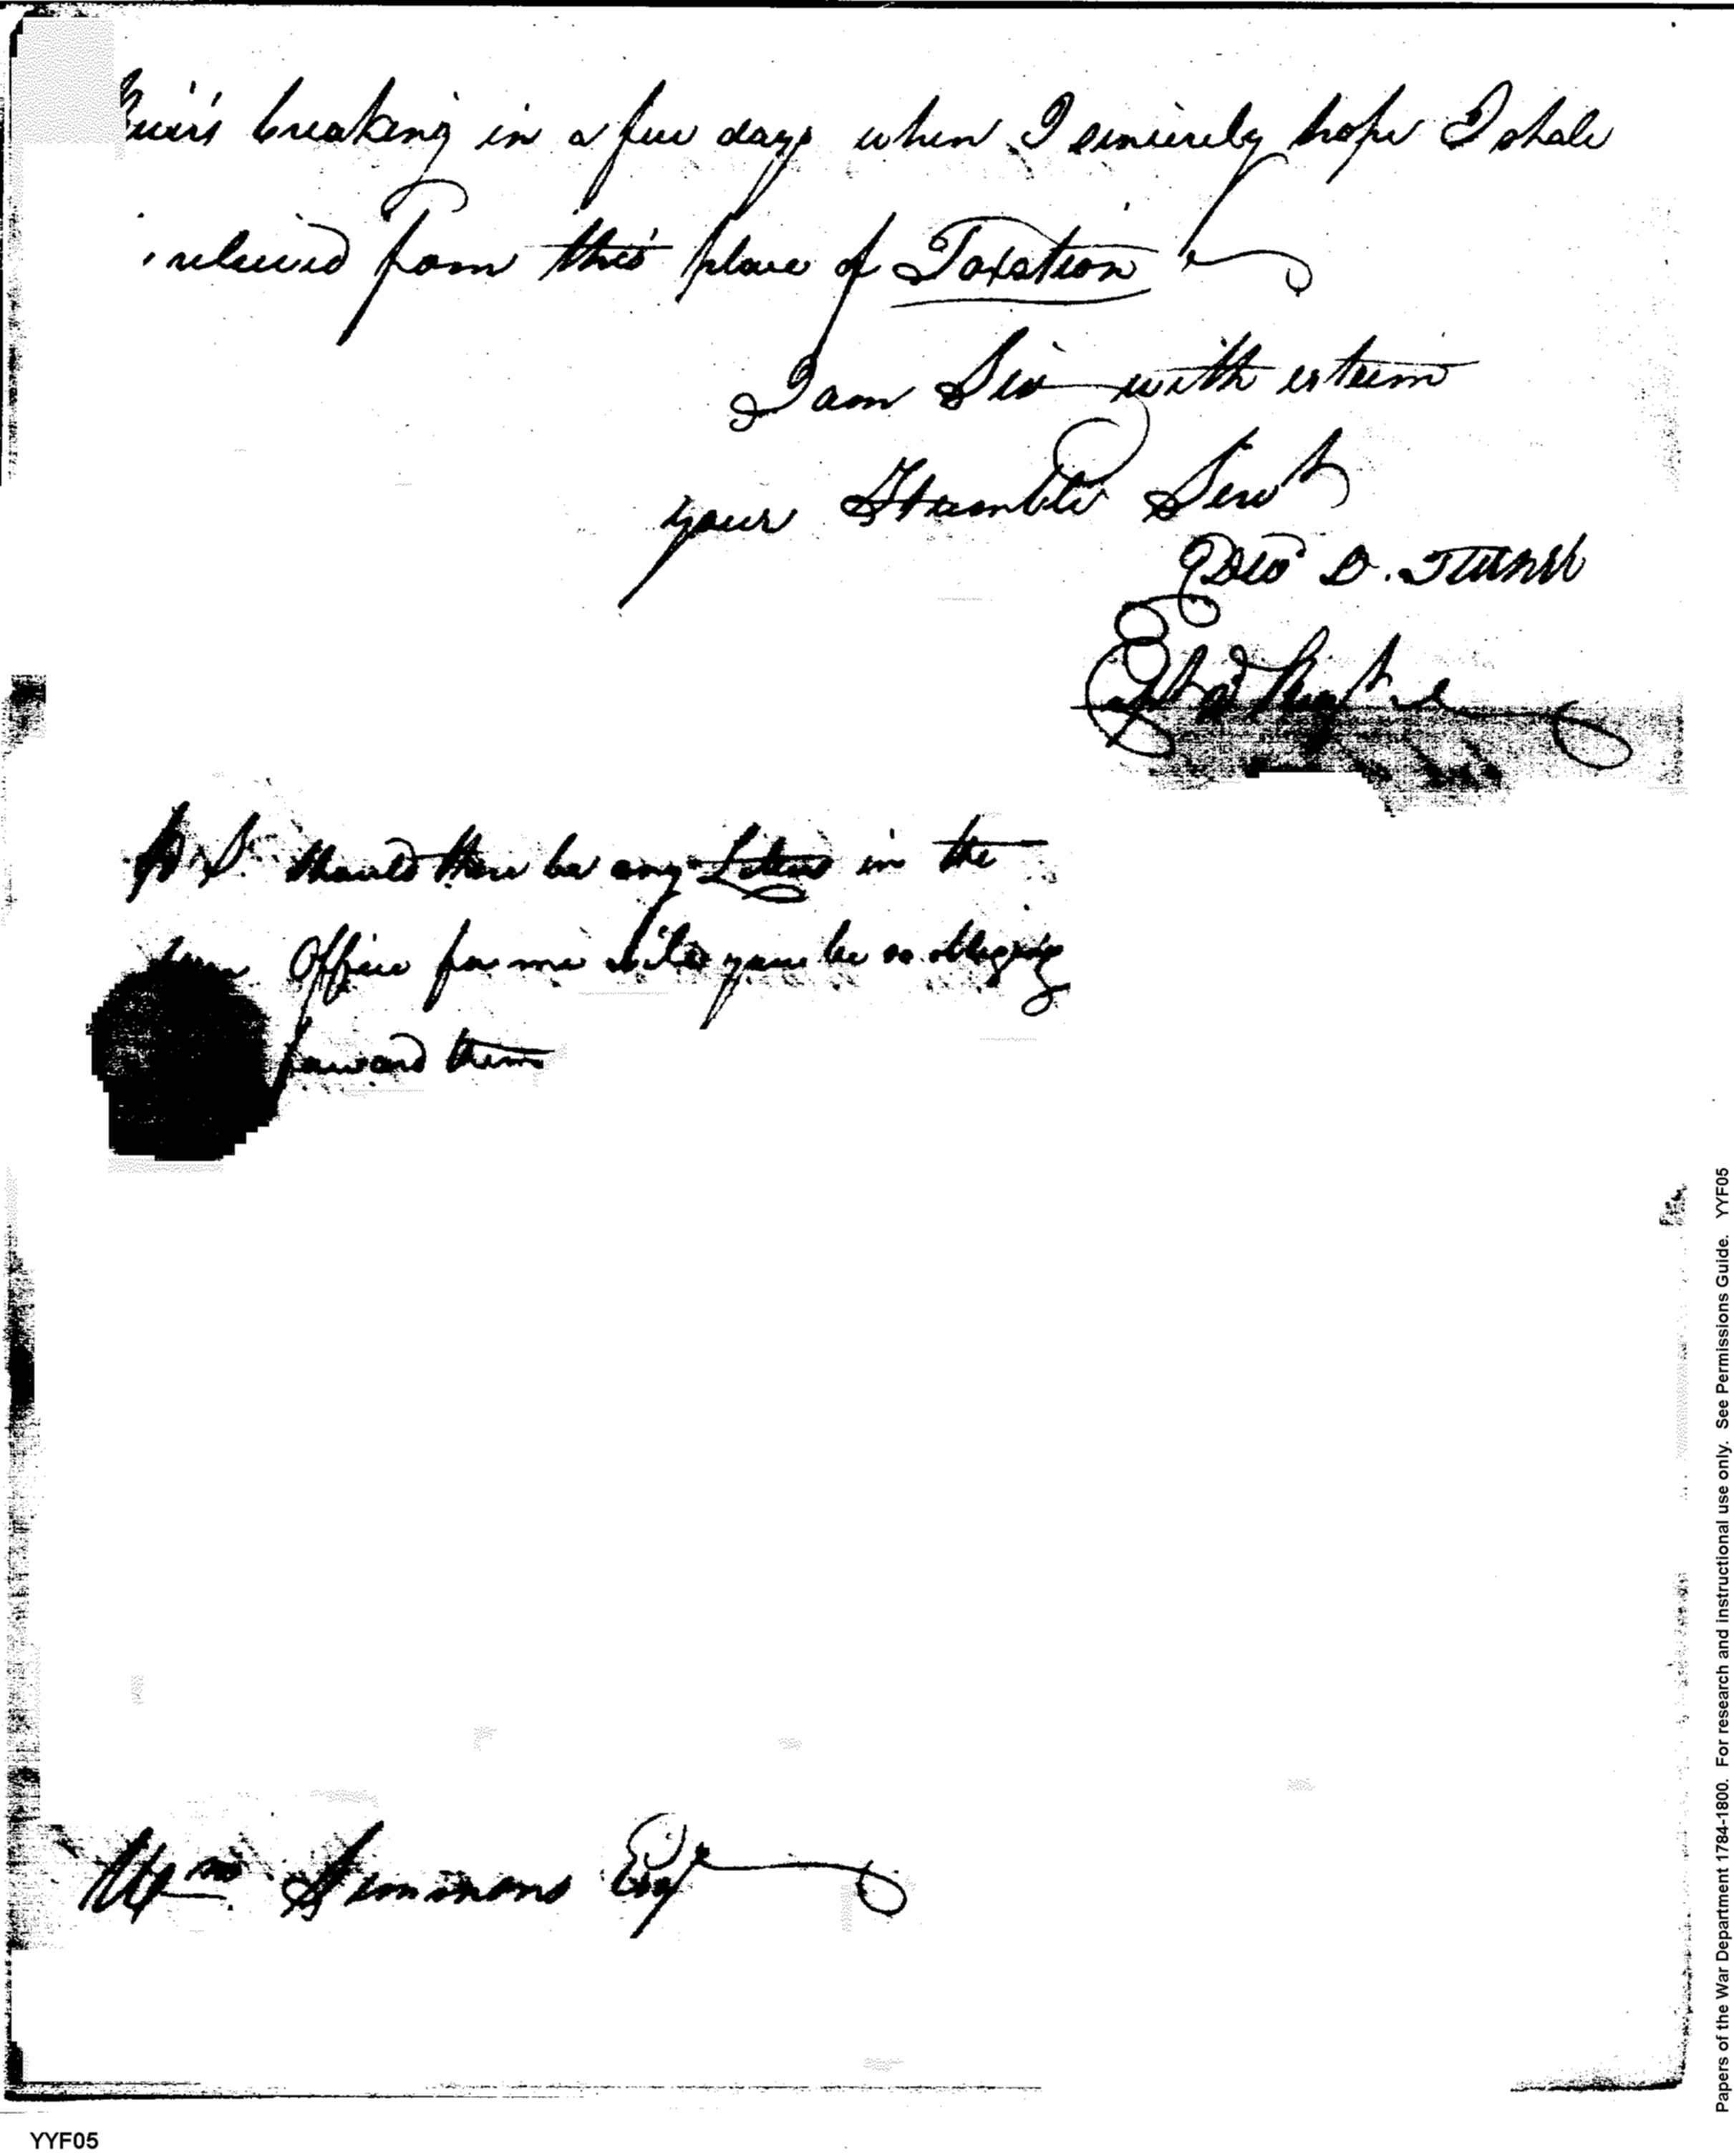 breaking in a few days when I sincerely hope I shale
relieved from this place of Taxation
I am Sir with esteem
your Humble Servt
D. Turner
P. S. Should there be any Letters in the
Office for me will you be so obliging
forward them
Wm Simmons Esqr
YYF05
Papers of the War Department 1784-1800. For research and instructional use only. See Permissions Guide. YYF05